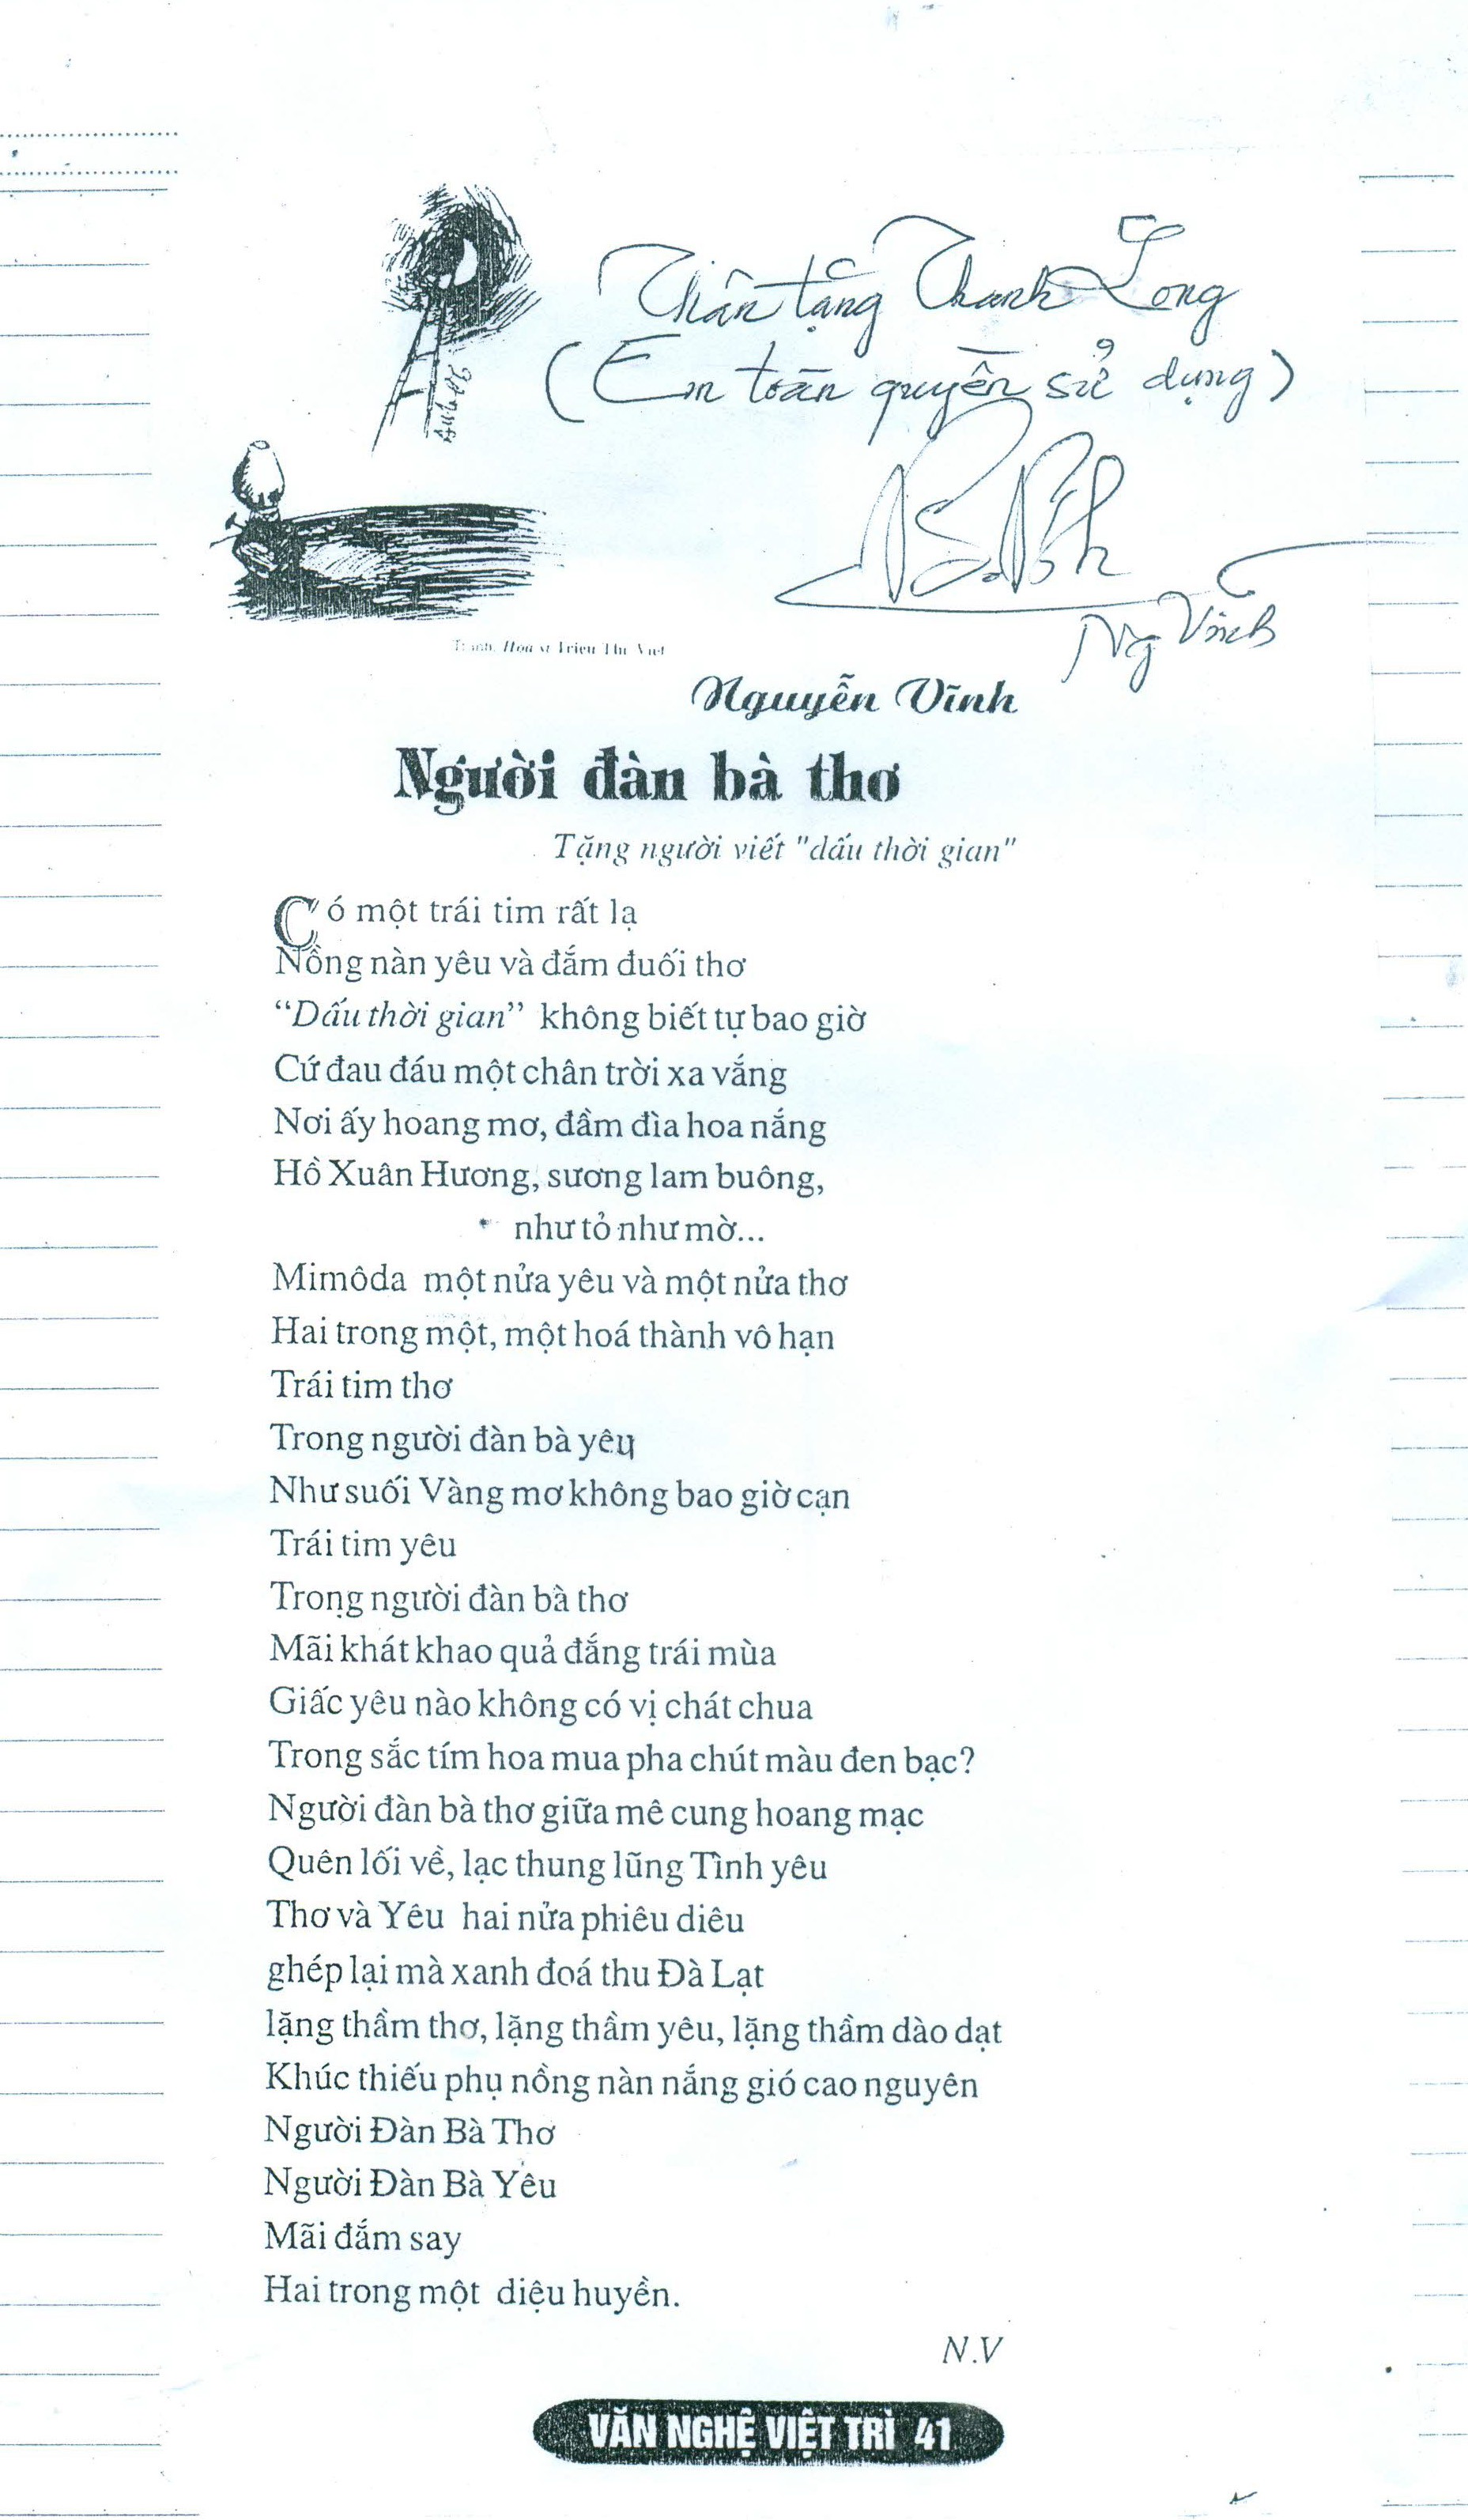 Thân tặng Thanh Long
(Em toàn quyền sử dụng)
Ng Vĩnh
Tranh: Họa sĩ
Nguyễn Vĩnh
Người đàn bà thơ
Tặng người viết "dấu thời gian"
Có một trái tim rất lạ
Nồng nàn yêu và đắm đuối thơ
“Dấu thời gian” không biết tự bao giờ
Cứ đau đáu một chân trời xa vắng
Nơi ấy hoang mơ, đầm đìa hoa nắng
Hồ Xuân Hương, sương lam buông,
như tỏ như mờ...
Mimôda một nửa yêu và một nửa thơ
Hai trong một, một hoá thành vô hạn
Trái tim thơ
Trong người đàn bà yêu
Như suối Vàng mơ không bao giờ cạn
Trái tim yêu
Trong người đàn bà thơ
Mãi khát khao quả đắng trái mùa
Giấc yêu nào không có vị chát chua
Trong sắc tím hoa mua pha chút màu đen bạc?
Người đàn bà thơ giữa mê cung hoang mạc
Quên lối về, lạc thung lũng Tình yêu
Thơ và Yêu hai nửa phiêu diêu
ghép lại mà xanh đoá thu Đà Lạt
lặng thầm thơ, lặng thầm yêu, lặng thầm dào dạt
Khúc thiếu phụ nồng nàn nắng gió cao nguyên
Người Đàn Bà Thơ
Người Đàn Bà Yêu
Mãi đắm say
Hai trong một diệu huyền.
N.V
VĂN NGHỆ VIỆT TRÌ 41